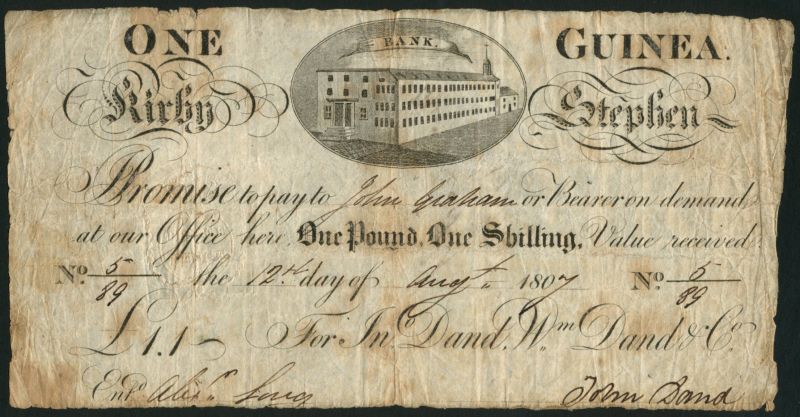 ONE BANK. GUINEA.
Kirby Stephen
Promise to pay to John Graham or Bearer on demand
at our Office here, One Pound, One Shilling, Value received
No. 5/89 the 12th day of Augt. 1807 No. 5/89
£1.1- For Jno. Dand, Wm Dand & Co.
Entd. Alexr. John Dand